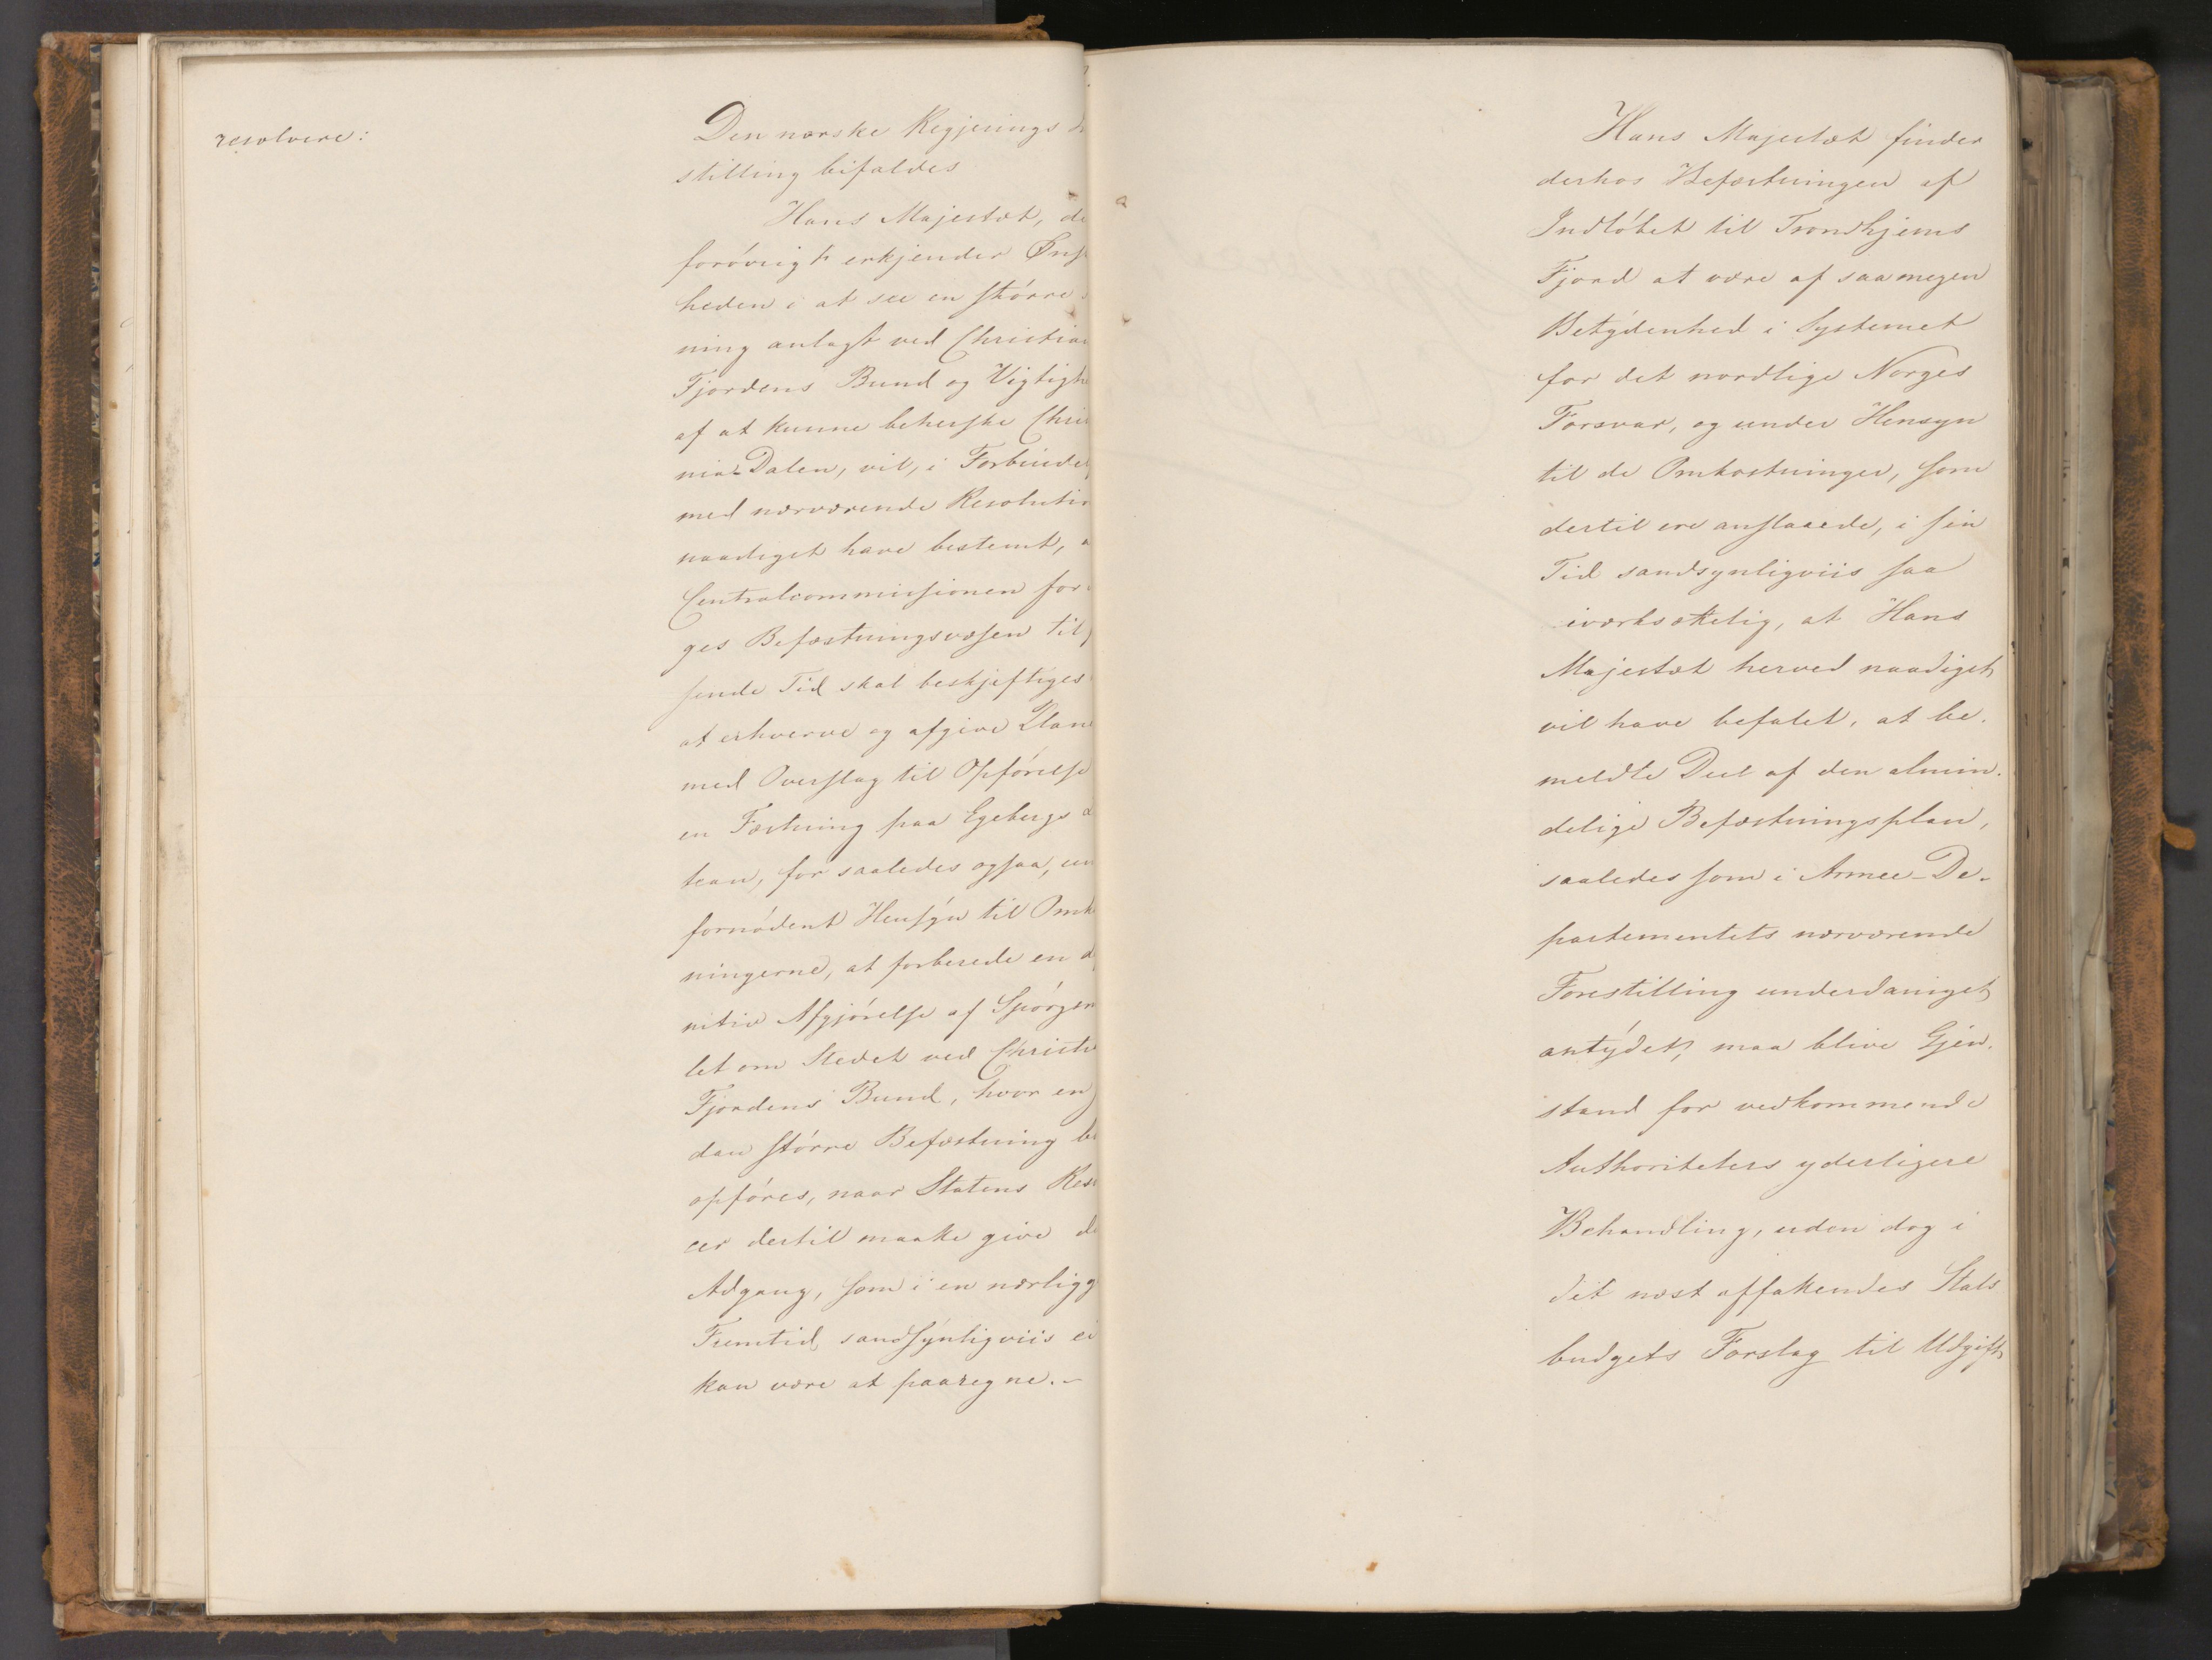 resolvere:
Den norske Regjerings
stilling bifaldes
Hans Majestæt, de
forøvrigt erkjender Ønsk
heden i at see en større
ning anlagt ved Christian
Fjordens Bund og Vigtighe
af at kunne beherske Chris
nia-Dalen, vil, i Forbindel
med nærværende Resolutio
naadigst have bestemt, a
Centralcommissionen for
ges Befæstningsvæsen til
sende Tid skal beskjeftiges
at erhverve og afgive Plane
med Overslag til Opførelse
en Fæstning paa Egebergs
kan, for saaledes ogsaa, un
fornødent Hensyn til Omk
ningerne, at forberede en d
nitiv Afgjørelse af Spørgsm
let om Stedet ved Christi
Fjordens Bund, hvor en
dan større Befæstning b
opføres, naar Statens Res
cer dertil maatte give d
Adgang, som i en nærligg
Fremtid sandsynligviis ei
kan være at paaregne.-
Hans Majestæt finder
derhos Befæstningen af
Indløbet til Trondhjems
Fjord at være af saa megen
Betydenhed i Systemet
for det nordlige Norges
Forsvar, og under Hensyn
til de Omkostninger, som
dertil ere anslaaede, i sin
Tid sandsynligviis saa
iværksættelig, at Hans
Majestæt herved naadigst
vil have befalet, at be-
meldte Deel af den almin-
delige Befæstningsplan,
saaledes som i Armee-De-
partementets nærværende
Forestilling underdanigst
antydet, maa blive Gjen-
stand for vedkommende
Authoriteters yderligere
Behandling, uden dog i
det næst affattendes Stats
budgets Forslag til Udgift